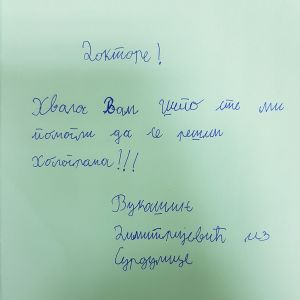 Докторе!
Хвала Вам што сте ми
помогли да се решим
Холограма!!!
Вукашин
Димитријевић из
Сурдулице